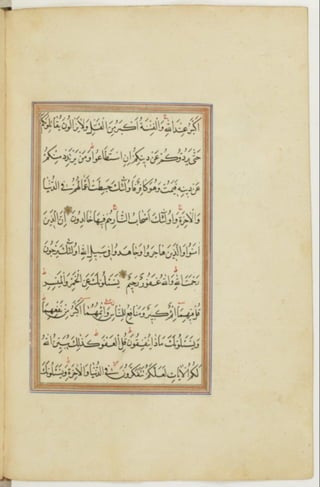 اَكْبَرُ عِنْدَ اللهِ وَالْفِتْنَةُ اَكْبَرُ مِنَ الْقَتْلِ وَلَا يَزَالُونَ يُقَاتِلُونَكُمْ
حَتّٰى يَرُدُّوكُمْ عَنْ دِينِكُمْ اِنِ اسْتَطَاعُوا وَمَنْ يَرْتَدِدْ مِنْكُمْ
عَنْ دِينِهِ فَيَمُتْ وَهُوَ كَافِرٌ فَاُولٰئِكَ حَبِطَتْ اَعْمَالُهُمْ فِي الدُّنْيَا
وَالْاٰخِرَةِ وَاُولٰئِكَ اَصْحَابُ النَّارِ هُمْ فِيهَا خَالِدُونَ اِنَّ الَّذِينَ
اٰمَنُوا وَالَّذِينَ هَاجَرُوا وَجَاهَدُوا فِي سَبِيلِ اللهِ اُولٰئِكَ يَرْجُونَ
رَحْمَتَ اللهِ وَاللهُ غَفُورٌ رَحِيمٌ يَسْئَلُونَكَ عَنِ الْخَمْرِ وَالْمَيْسِرِ
قُلْ فِيهِمَا اِثْمٌ كَبِيرٌ وَمَنَافِعُ لِلنَّاسِ وَاِثْمُهُمَا اَكْبَرُ مِنْ نَفْعِهِمَا
وَيَسْئَلُونَكَ مَاذَا يُنْفِقُونَ قُلِ الْعَفْوَ كَذٰلِكَ يُبَيِّنُ اللهُ
لَكُمُ الْاٰيَاتِ لَعَلَّكُمْ تَتَفَكَّرُونَ فِي الدُّنْيَا وَالْاٰخِرَةِ وَيَسْئَلُونَكَ